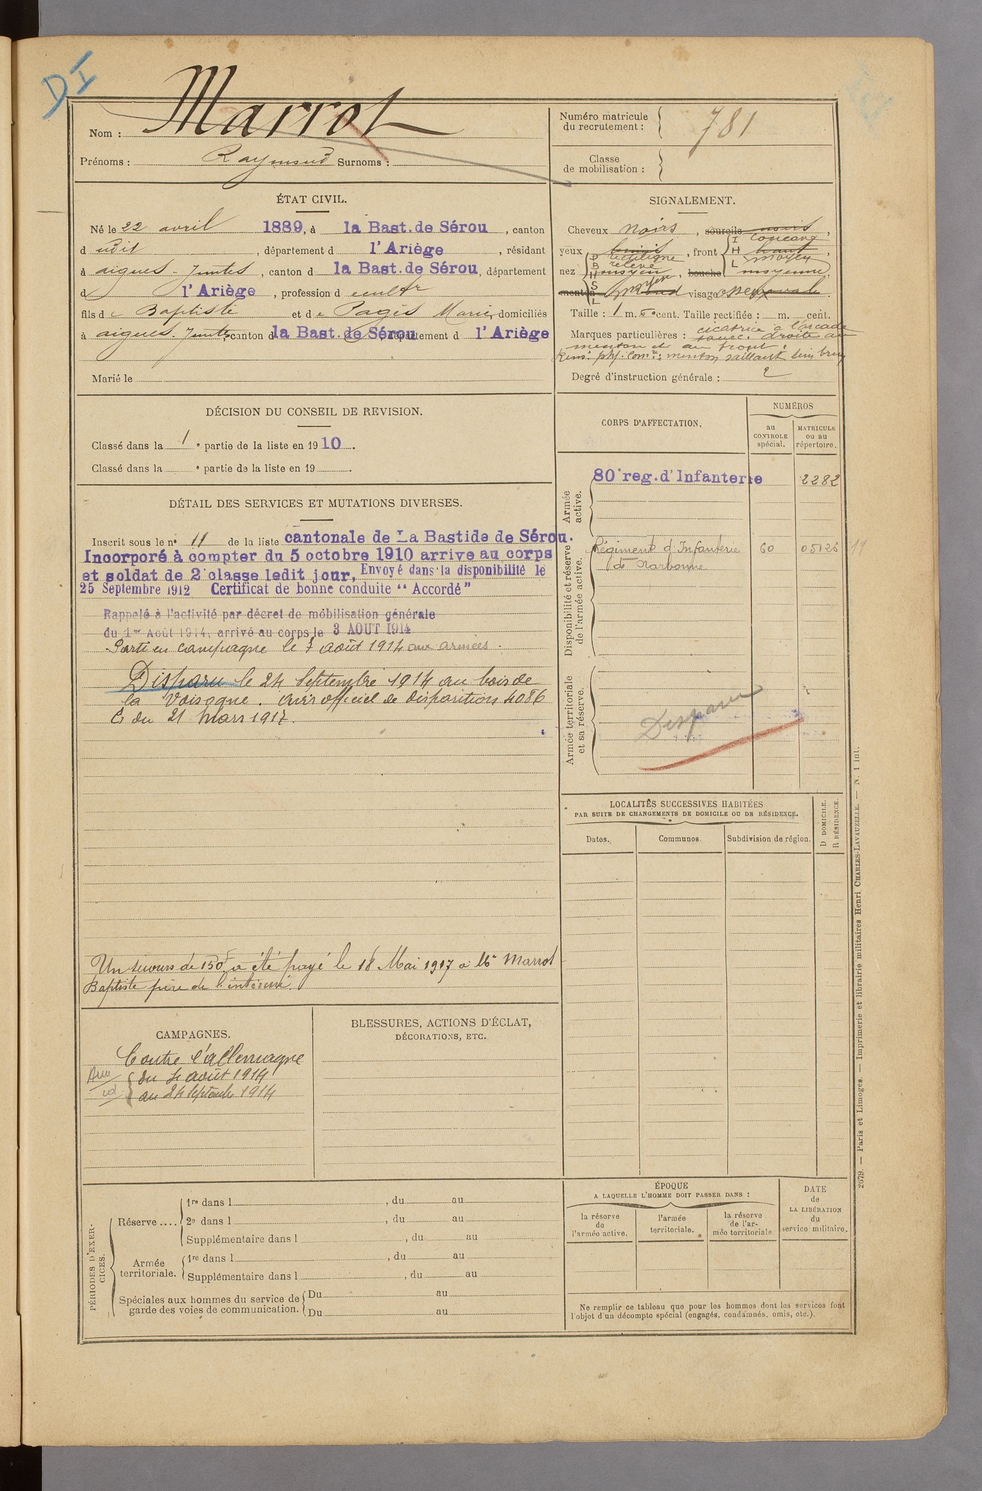 DI
Nom : Marrot
Prénoms : Raymond Surnoms :
Numéro matricule du recrutement : 781
Classe de mobilisation :
ÉTAT CIVIL.
Né le 22 avril 1889, à la Bast. de Sérou, canton
d udit, département d l'Ariège, résidant
à aigues-Juntes, canton d la Bast. de Sérou, département
d l'Ariège, profession d
fils de Baptiste et de Pagès Marie, domiciliés
à aigues-Juntes, canton d la Bast. de Sérou, département d l'Ariège
Marié le
SIGNALEMENT.
Cheveux noirs, sourcils noirs,
yeux, front concave
nez rectiligne relevé moyen, bouche moyenne
menton rond visage ovale
Taille : 1 m. cent. Taille rectifiée : m. cent.
Marques particulières : cicatrice à l'arcade
droite au
menton et au front.
Rens. phy. com. : menton saillant
Degré d'instruction générale : 2
DÉCISION DU CONSEIL DE REVISION.
Classé dans la 1e partie de la liste en 1910.
Classé dans la e partie de la liste en 19 .
DÉTAIL DES SERVICES ET MUTATIONS DIVERSES.
Inscrit sous le n° 11 de la liste cantonale de La Bastide de Sérou.
Incorporé à compter du 5 octobre 1910 arrive au corps
et soldat de 2e classe ledit jour, Envoyé dans la disponibilité le
25 Septembre 1912 Certificat de bonne conduite "Accordé"
Rappelé à l'activité par décret de mobilisation générale
du 1er Août 1914, arrivé au corps le 3 AOUT 1914
Parti en campagne le 7 août 1914 aux armées.
Disparu le 24 Septembre 1914 au bois de
la Voisogne. avis officiel de disparition 4086
E du 21 mars 1917.
Un secours de 150f a été payé le 18 Mai 1917 à Mr Marrot
Baptiste père de l'intéressé.
CORPS D'AFFECTATION.
NUMÉROS
au CONTROLE spécial.
MATRICULE ou au répertoire.
Armée active.
80e reg. d'Infanterie 2282
Disponibilité et réserve de l'armée active.
Régiment d'Infanterie 60 05126
de Narbonne
Armée territoriale et sa réserve.
Disparu
LOCALITÉS SUCCESSIVES HABITÉES
PAR SUITE DE CHANGEMENTS DE DOMICILE OU DE RÉSIDENCE.
Dates. Communes. Subdivision de région. D DOMICILE. R RÉSIDENCE.
CAMPAGNES.
Contre l'allemagne
du 4 août 1914
au 24 Septembre 1914
BLESSURES, ACTIONS D'ÉCLAT,
DÉCORATIONS, ETC.
PÉRIODES D'EXERCICES.
Réserve .... 1re dans l , du au
2e dans l , du au
Supplémentaire dans l , du au
Armée territoriale. 1re dans l , du au
Supplémentaire dans l , du au
Spéciales aux hommes du service de garde des voies de communication. Du au
Du au
ÉPOQUE
A LAQUELLE L'HOMME DOIT PASSER DANS :
la réserve de l'armée active.
l'armée territoriale.
la réserve de l'armée territoriale
DATE de LA LIBÉRATION du service militaire.
Ne remplir ce tableau que pour les hommes dont les services font
l'objet d'un décompte spécial (engagés, condamnés, omis, etc.).
2679. — Paris et Limoges. — Imprimerie et librairie militaires Henri CHARLES-LAVAUZELLE. — N. 1 int.